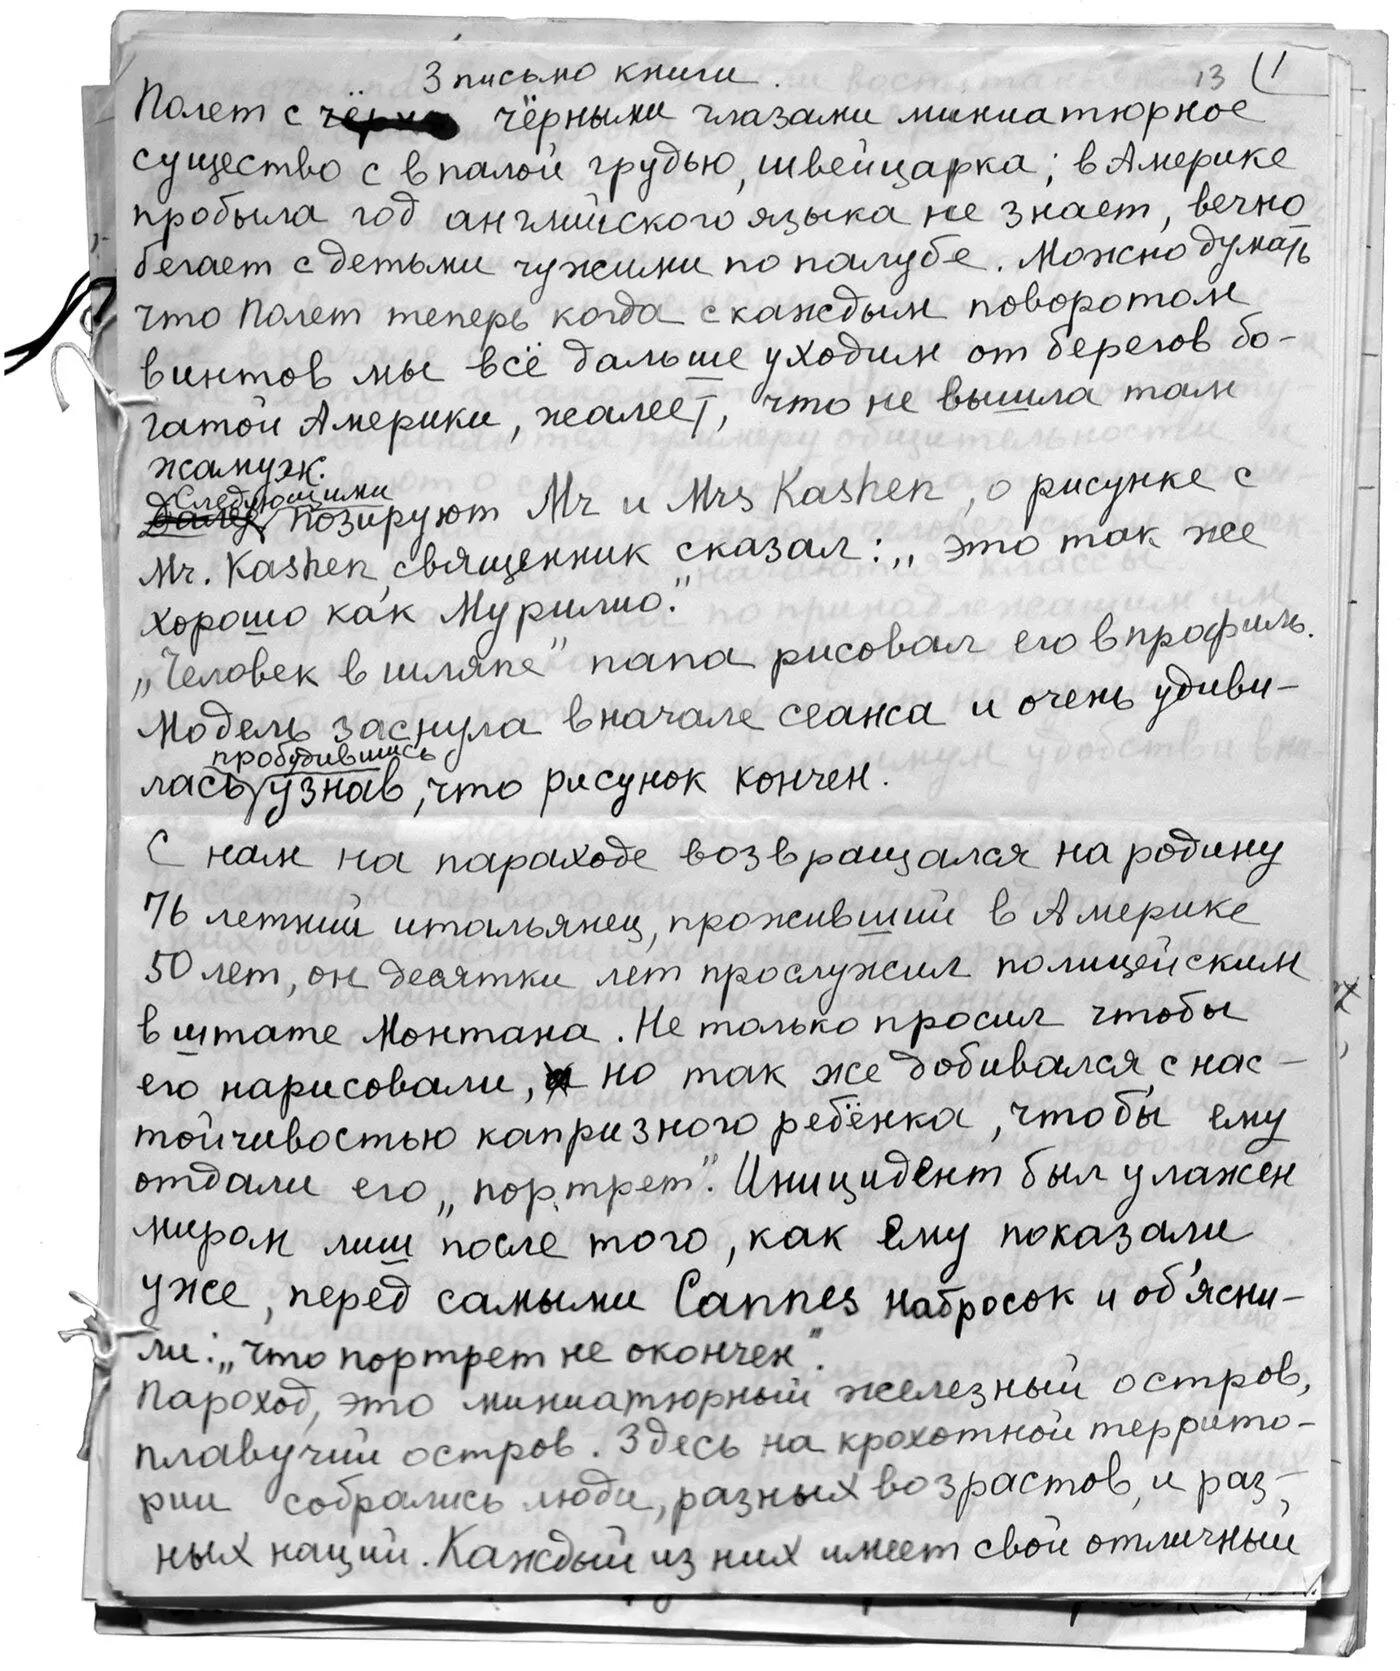 3 письмо книги.
13 1
Полет с чёрны чёрными глазами миниатюрное
существо с впалой грудью, швейцарка; в Америке
пробыла год английского языка не знает, вечно
бегает с детьми чужими по палубе. Можно думать
что Полет теперь когда с каждым поворотом
винтов мы всё дальше уходим от берегов бо-
гатой Америки, жалеет, что не вышла там
жамуж.
Следующими
позируют Mr и Mrs Kashen, о рисунке с
Mr. Kashen, священник сказал: „это так же
хорошо как Мурилио."
„Человек в шляпе" папа рисовал его в профиль.
Модель заснула вначале сеанса и очень удиви-
пробудившись
лась узнав, что рисунок кончен.
С нам на параходе возвращался на родину
76 летний итальянец, проживший в Америке
50 лет, он десятки лет прослужил полицейским
в штате Монтана. Не только просил чтобы
его нарисовали, но так же добивался, с нас-
тойчивостью капризного ребёнка, чтобы ему
отдали его „портрет". Инициидент был улажен
миром лиш после того, как ему показали
уже, перед самыми Cannes набросок и об'ясни-
ли: „что портрет не окончен".
Пароход, это миниатюрный железный остров,
плавучий остров. Здесь на крохотной террито-
рии собрались люди, разных возрастов, и раз-
ных наций. Каждый из них имеет свой отличный